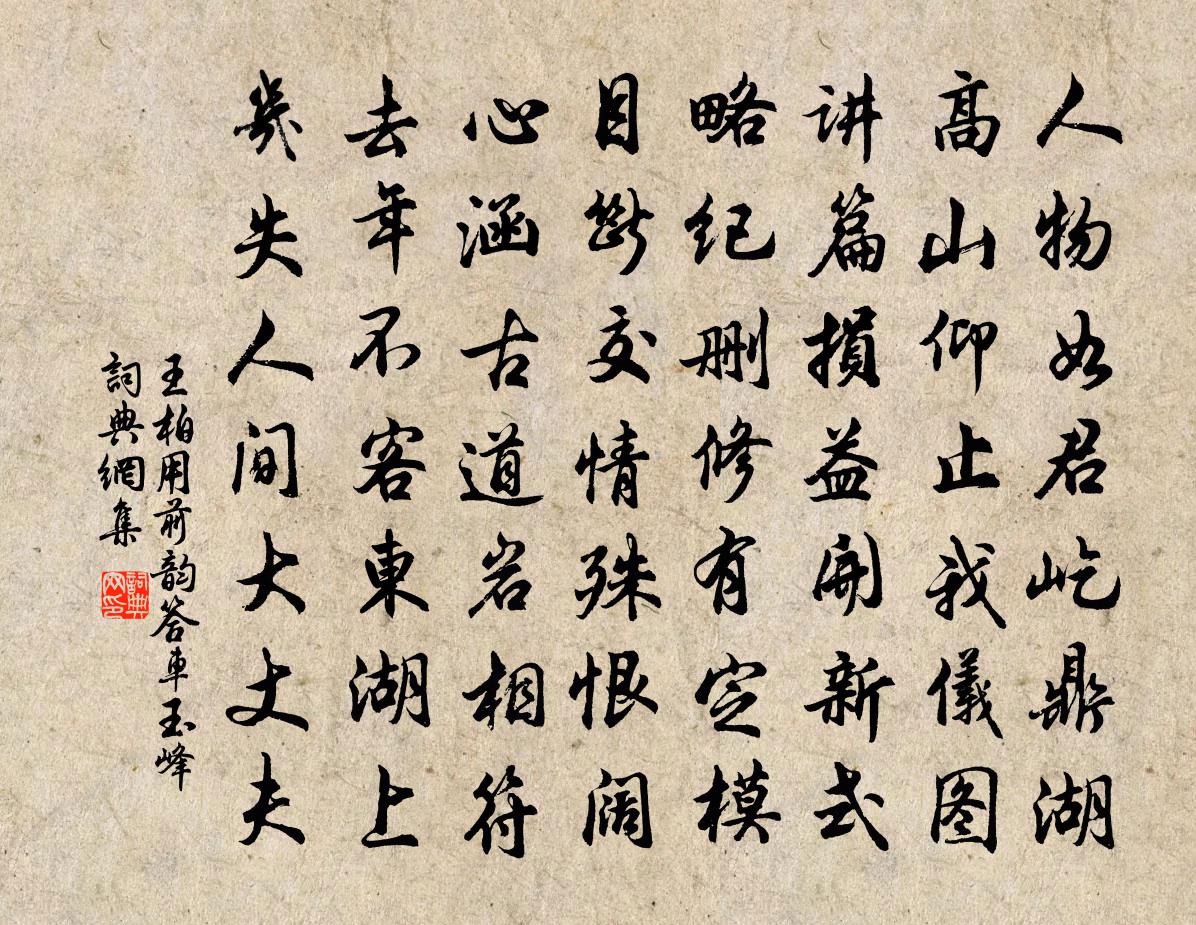 人物如君屹鼎湖
高山仰止我儀图
讲篇損益開新式
略纪删修有定模
目斷交情殊恨阔
心涵古道岩相符
去年不客東湖上
幾失人间大丈夫
王柏用前韵答車玉峰
詞典網集
詞典网印